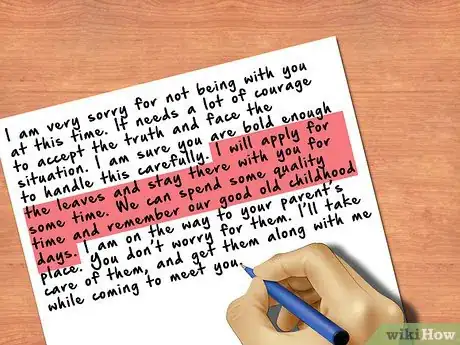 I am very sorry for not being with you
at this time. It needs a lot of courage
to accept the truth and face the
situation. I am sure you are bold enough
to handle this carefully. I will apply for
the leaves and stay there with you for
some time. We can spend some quality
time and remember our good old childhood
days. I am on the way to your parent's
place. You don't worry for them. I'll take
care of them, and get them along with me
while coming to meet you.
wikiHow